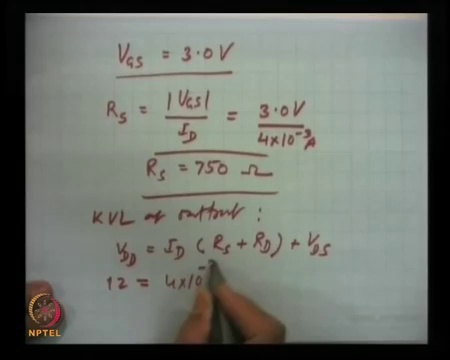 V_GS = 3.0 V
R_S = |V_GS| / I_D = 3.0 V / 4×10⁻³ A
R_S = 750 Ω
KVL at output :
V_DD = I_D ( R_S + R_D ) + V_DS
12 = 4×10⁻
NPTEL